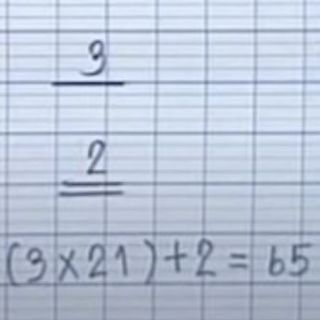 3
2
(3×21)+2=65